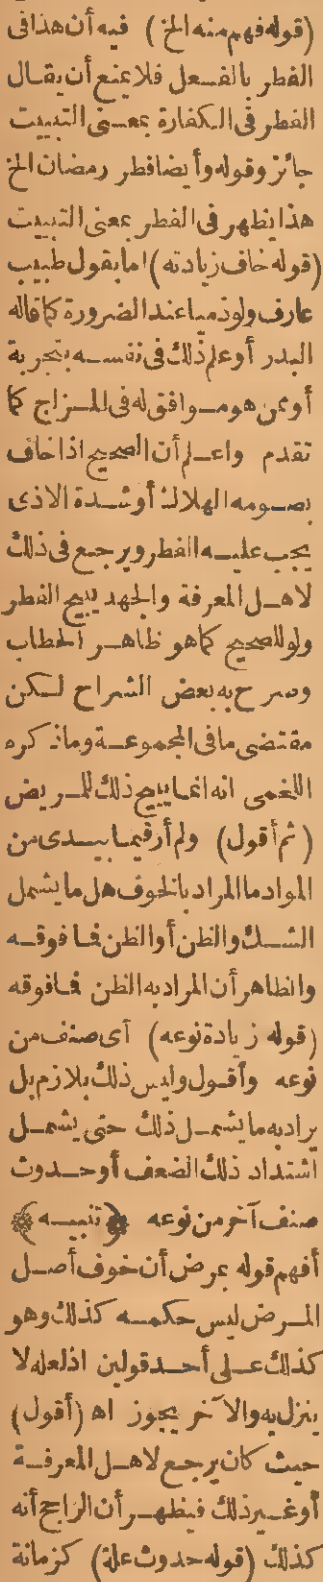 (قوله فهم منه الخ) فيه أن هذا فى
الفطر بالفعل فلا يمنع أن يقال
الفطر فى الكفارة بمعنى التبييت
جائز وقوله وأيضا فطر رمضان الخ
هذا يظهر فى الفطر بمعنى التبييت
(قوله خاف زيادته) اما بقول طبيب
عارف ولو ذميا عند الضرورة كما قاله
البدر أو علم ذلك فى نفسه بتجربة
أو ممن هو موافق له فى المزاج كما
تقدم واعلم أن الصحيح اذا خاف
بصومه الهلاك أو شدة الاذى
يجب عليه الفطر ويرجع فى ذلك
لاهل المعرفة والجهد يبيح الفطر
ولو للصحيح كما هو ظاهر الحطاب
وصرح به بعض الشراح لكن
مقتضى ما فى المجموعة وماذكره
اللخمى انه انما يبيح ذلك للمريض
(ثم أقول) ولم أر فيما بيدى من
المواد ما المراد بالخوف هل ما يشمل
الشك والظن أو الظن فما فوقه
والظاهر أن المراد به الظن فما فوقه
(قوله زيادة نوعه) أى صنف من
نوعه وأقول وليس ذلك بلازم بل
يراد به ما يشمل ذلك حتى يشمل
اشتداد ذلك الضعف أو حدوث
صنف آخر من نوعه ﴿تنبيه﴾
أفهم قوله بمرض أن خوف أصل
المرض ليس حكمه كذلك وهو
كذلك على أحد قولين اذ لعله لا
ينزل به والآخر يجوز اه (أقول)
حيث كان يرجع لاهل المعرفة
أو غير ذلك فيظهر أن الراجح أنه
كذلك (قوله حدوث علة) كزمانة